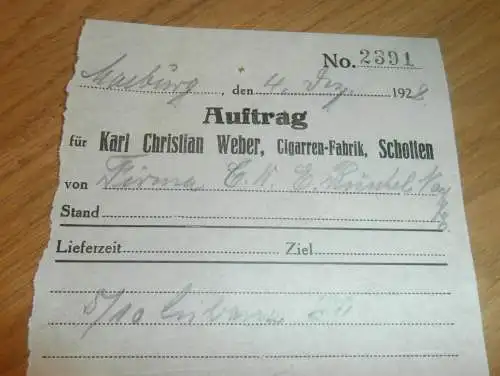 No. 2391
Marburg, den 4. Dez. 1928
Auftrag
für Karl Christian Weber, Cigarren-Fabrik, Schotten
von Firma C. W. E.
Stand
Lieferzeit Ziel
5/10